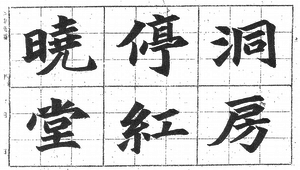 洞房
停紅
曉堂